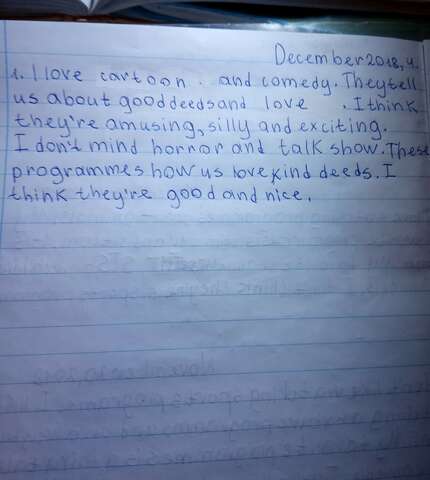 December 2018, 4.
1. I love cartoon. and comedy. They tell
us about good deeds and love. I think
they're amusing, silly and exciting.
I don't mind horror and talk show. These
programmes how us love kind deeds. I
think they're good and nice.